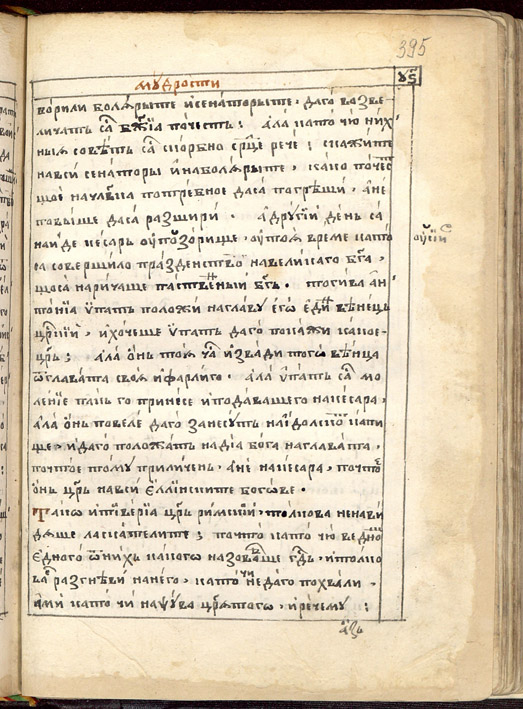 395
мѹдрости
ворили болѧрыте и сенаторыте, да го возве
личатъ съ бж҃їа почесть: ала като чю ни́х
ныѧ совѣтъ съ скорбно срⷣце рече: скажите
на вси сенаторы и на болѧрыте, како почест
щое началика потребное да са погрѣши, а не
повыше да са разшири. а дрѹгїй день са
наиде кесарь ѹ позорище, ѹ тоѧ време като
са совершило празденство на великаго бг҃а,
щоса наричаше таственый бг҃ъ. тогива ан
тонїа ѵпатъ положи на главꙋ егѡ еди́ вѣнецъ
цр҃кїй, и хочеше ѵпатъ да го покажи какое
цр҃ь: ала онь тоѧ часъ извади того вѣнца
ѿ главата своѧ и фарли го. ала ѵпатъ съ мо
ленїе пакь го принесе и подаваше го на кесара,
ала онь повеле да го занесꙋтъ на їдолскїѡ капи
ще, и да го положатъ на дїа бога на главата,
почто е томꙋ приличень, а не на кесара, почто е
онь цр҃ь на вси еллинските богове.
Тако и тиверїа цр҃ь римскїй, толкова ненави
дѧше ласкателите; почто като чю ведно
едного ѿ них какого назоваше гдⷭ҇ь, и толко
ва са разгнѣви на него, като чи не даго похвали
ими като чи напсꙋва цр҃ѧтого, и рече мꙋ:
азь